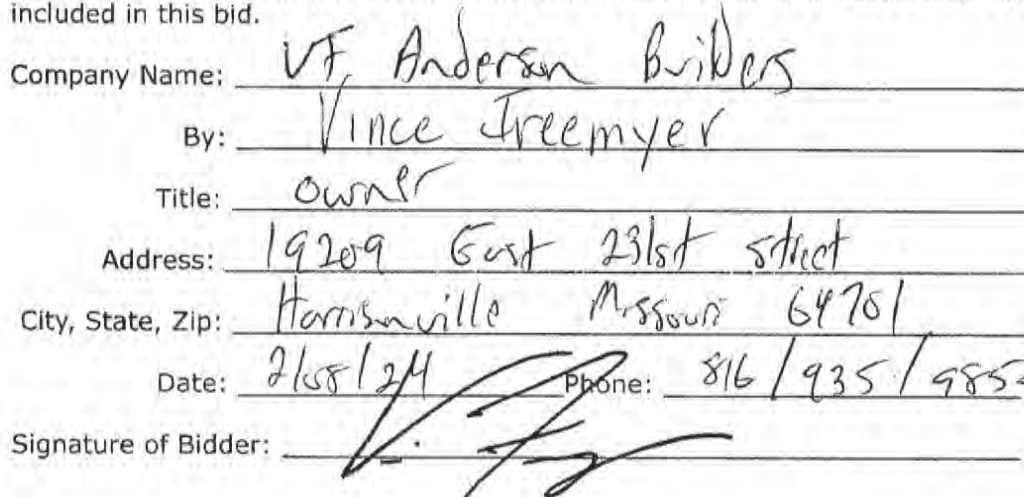 included in this bid.
Company Name: VF Anderson Builders
By: Vince Freemyer
Title: owner
Address: 19209 East 231st street
City, State, Zip: Harrisonville Missouri 64701
Date: 2/08/24 Phone: 816/935/985
Signature of Bidder: